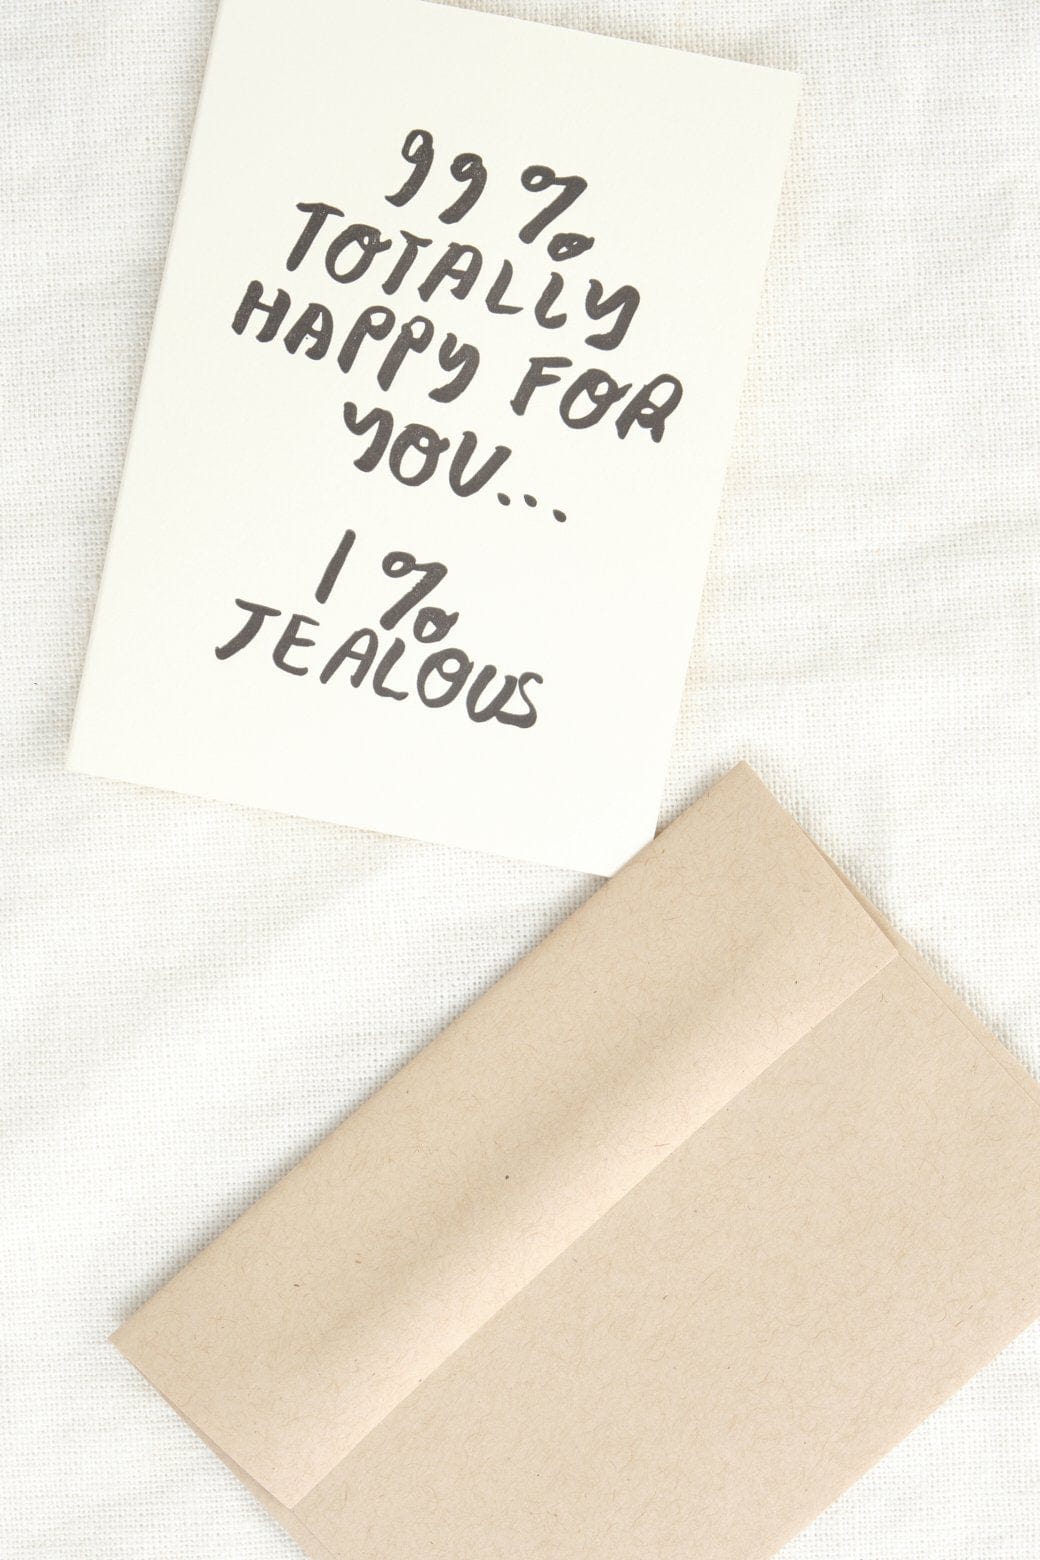 99%
TOTALLY
HAPPY FOR
YOU...
1%
JEALOUS